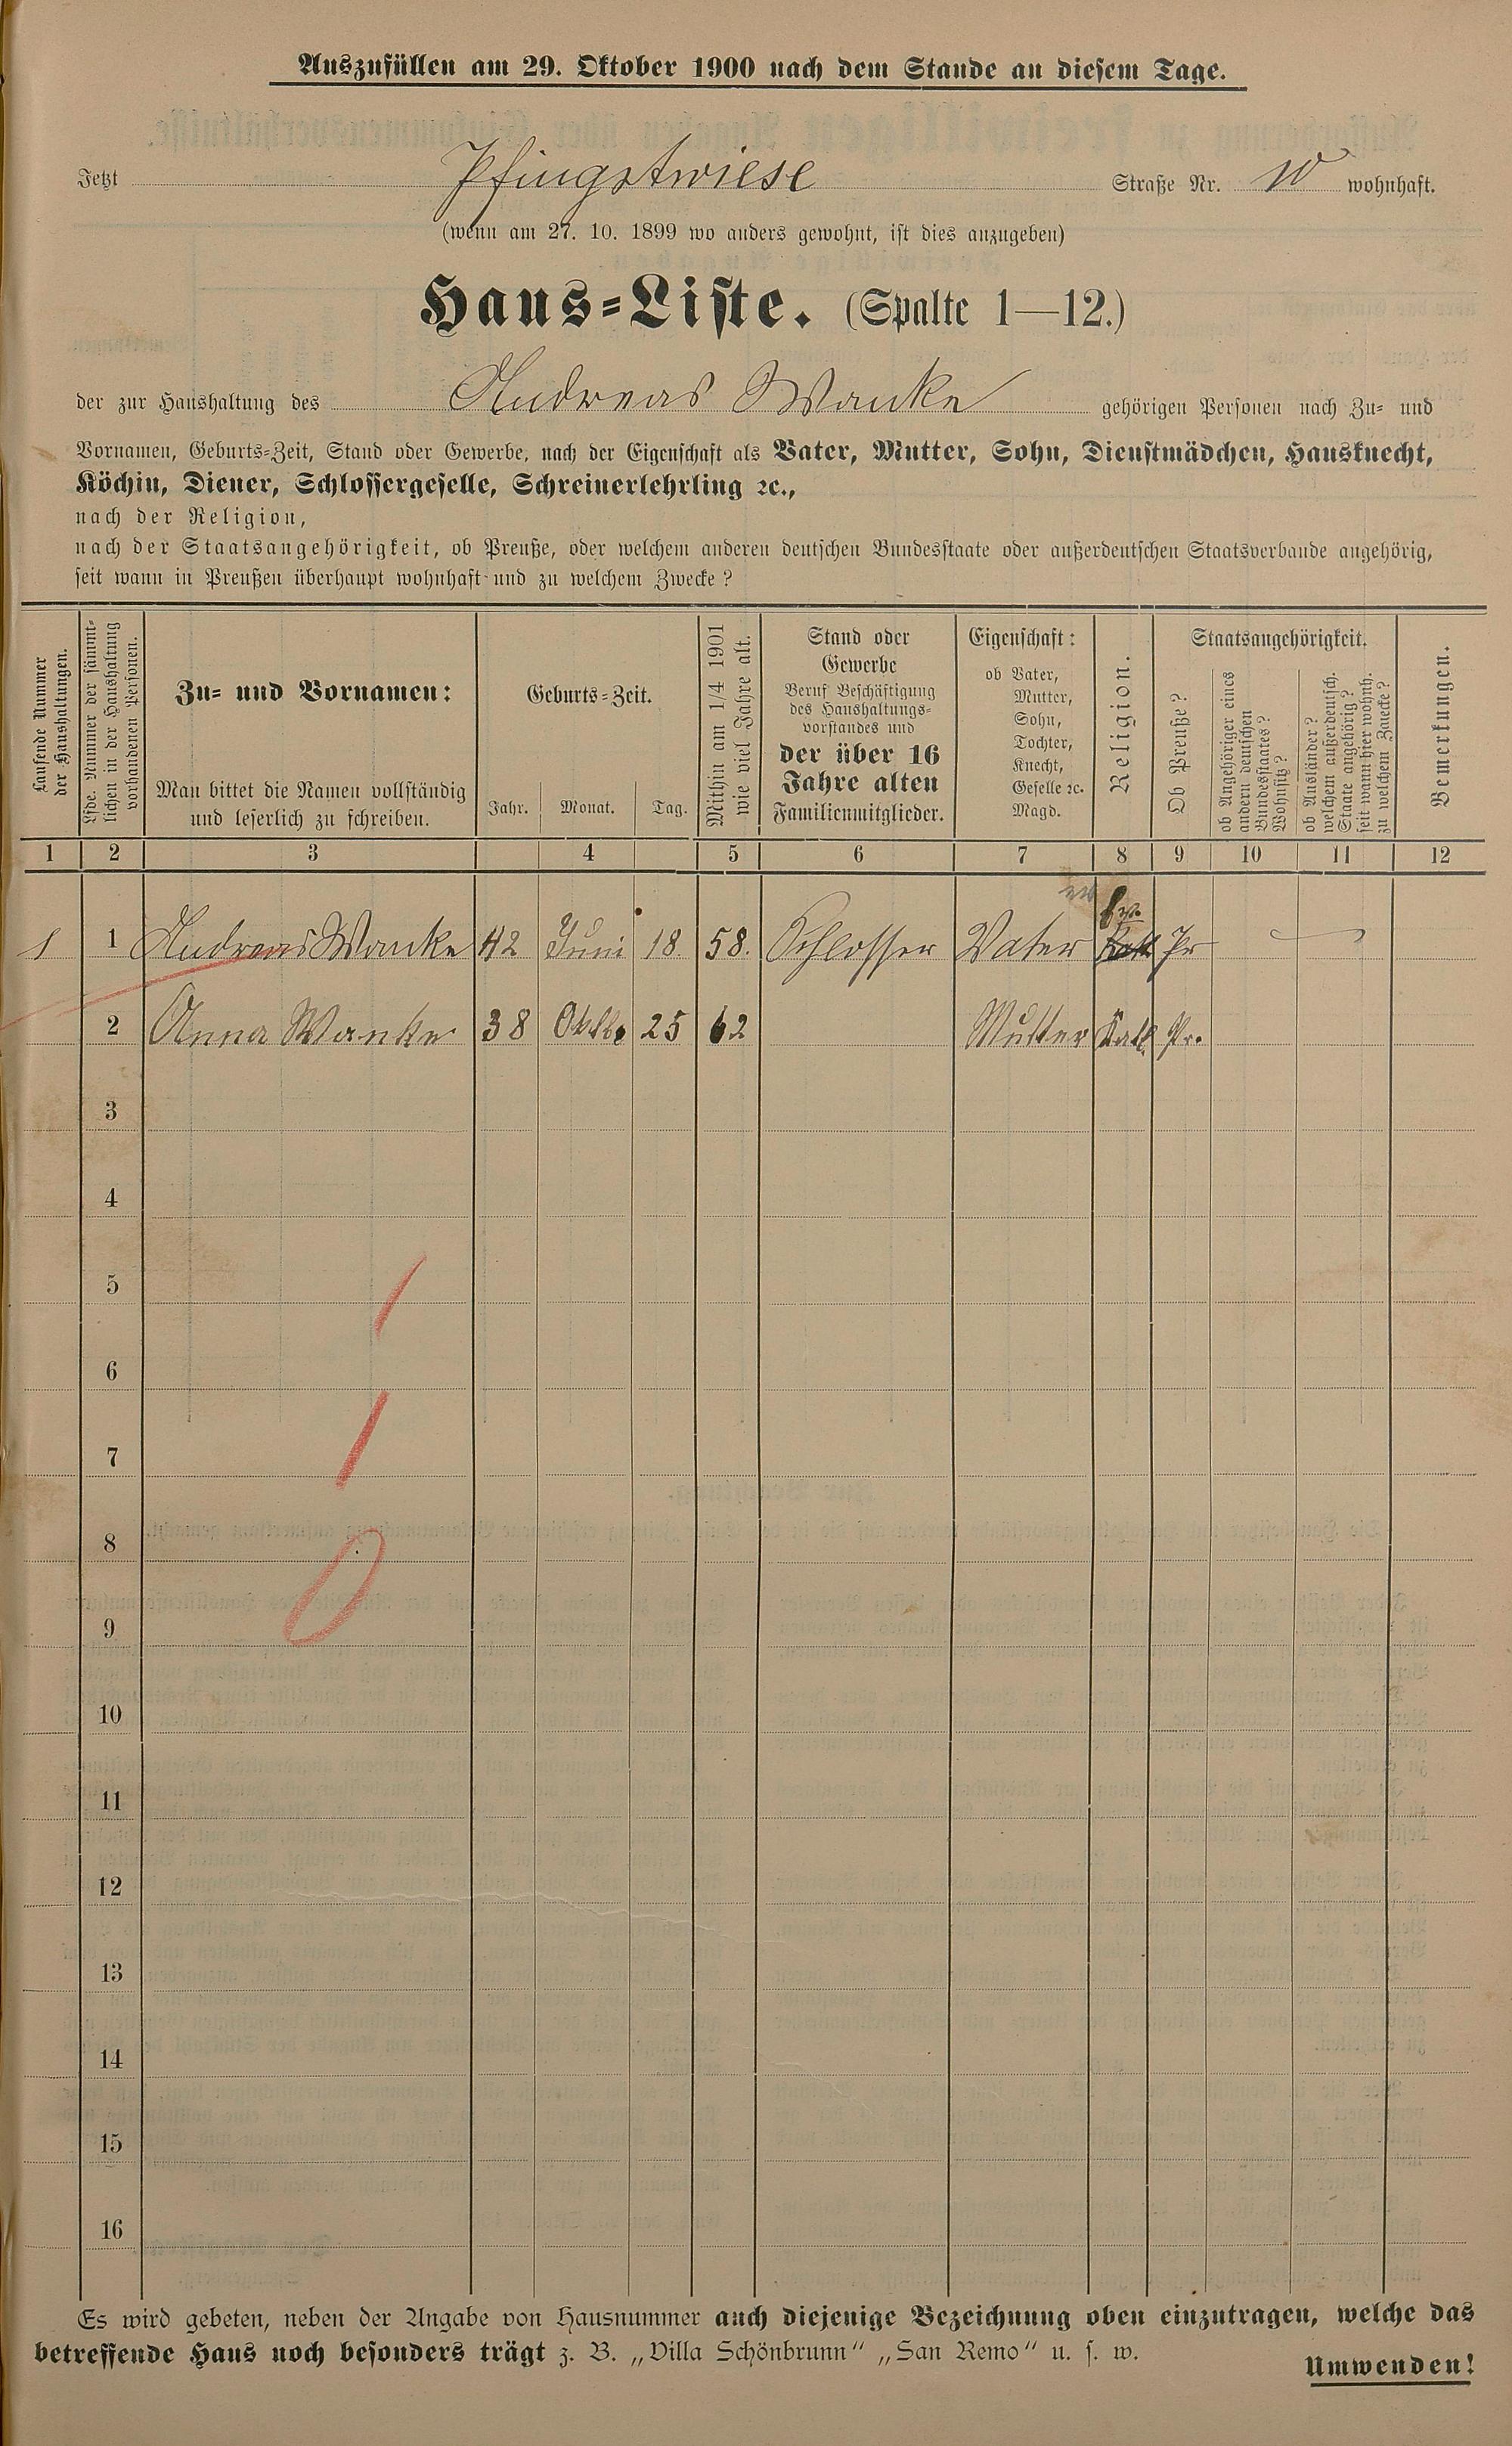 Auszufüllen am 29. Oktober 1900 nach dem Stande an diesem Tage.
Jetzt Pfingstwiese Straße Nr. 10 wohnhaft.
(wenn am 27. 10. 1899 wo anders gewohnt, ist dies anzugeben)
Haus-Liste. (Spalte 1—12.)
der zur Haushaltung des Andreas Wanke gehörigen Personen nach Zu- und
Vornamen, Geburts-Zeit, Stand oder Gewerbe, nach der Eigenschaft als Vater, Mutter, Sohn, Dienstmädchen, Hausknecht,
Köchin, Diener, Schlossergeselle, Schreinerlehrling ꝛc.,
nach der Religion,
nach der Staatsangehörigkeit, ob Preuße, oder welchem anderen deutschen Bundesstaate oder außerdeutschen Staatsverbande angehörig,
seit wann in Preußen überhaupt wohnhaft und zu welchem Zwecke?
Laufende Nummer
der Haushaltungen.
Lfde. Nummer der sämmt-
lichen in der Haushaltung
vorhandenen Personen.
Zu- und Vornamen:
Man bittet die Namen vollständig
und leserlich zu schreiben.
Geburts-Zeit.
Jahr. Monat. Tag.
Mithin am 1/4 1901
wie viel Jahre alt.
Stand oder
Gewerbe
Beruf Beschäftigung
des Haushaltungs-
vorstandes und
der über 16
Jahre alten
Familienmitglieder.
Eigenschaft:
ob Vater,
Mutter,
Sohn,
Tochter,
Knecht,
Geselle ꝛc.
Magd.
Religion.
Staatsangehörigkeit.
Ob Preuße?
ob Angehöriger eines
andern deutschen
Bundesstaates?
Wohnsitz?
ob Ausländer?
welchem außerdeutsch.
Staate angehörig?
seit wann hier wohnh.
zu welchem Zwecke?
Bemerkungen.
1 2 3 4 5 6 7 8 9 10 11 12
ev.
1 1 Andreas Wanke 42 Juni 18. 58. Schlosser Vater Kath Pr
2 Anna Wanke 38 Oktb. 25 62 Mutter Kath. Pr.
3
4
5
6
7
8
9
10
11
12
13
14
15
16
Es wird gebeten, neben der Angabe von Hausnummer auch diejenige Bezeichnung oben einzutragen, welche das
betreffende Haus noch besonders trägt z. B. „Villa Schönbrunn“ „San Remo“ u. s. w.
Umwenden!